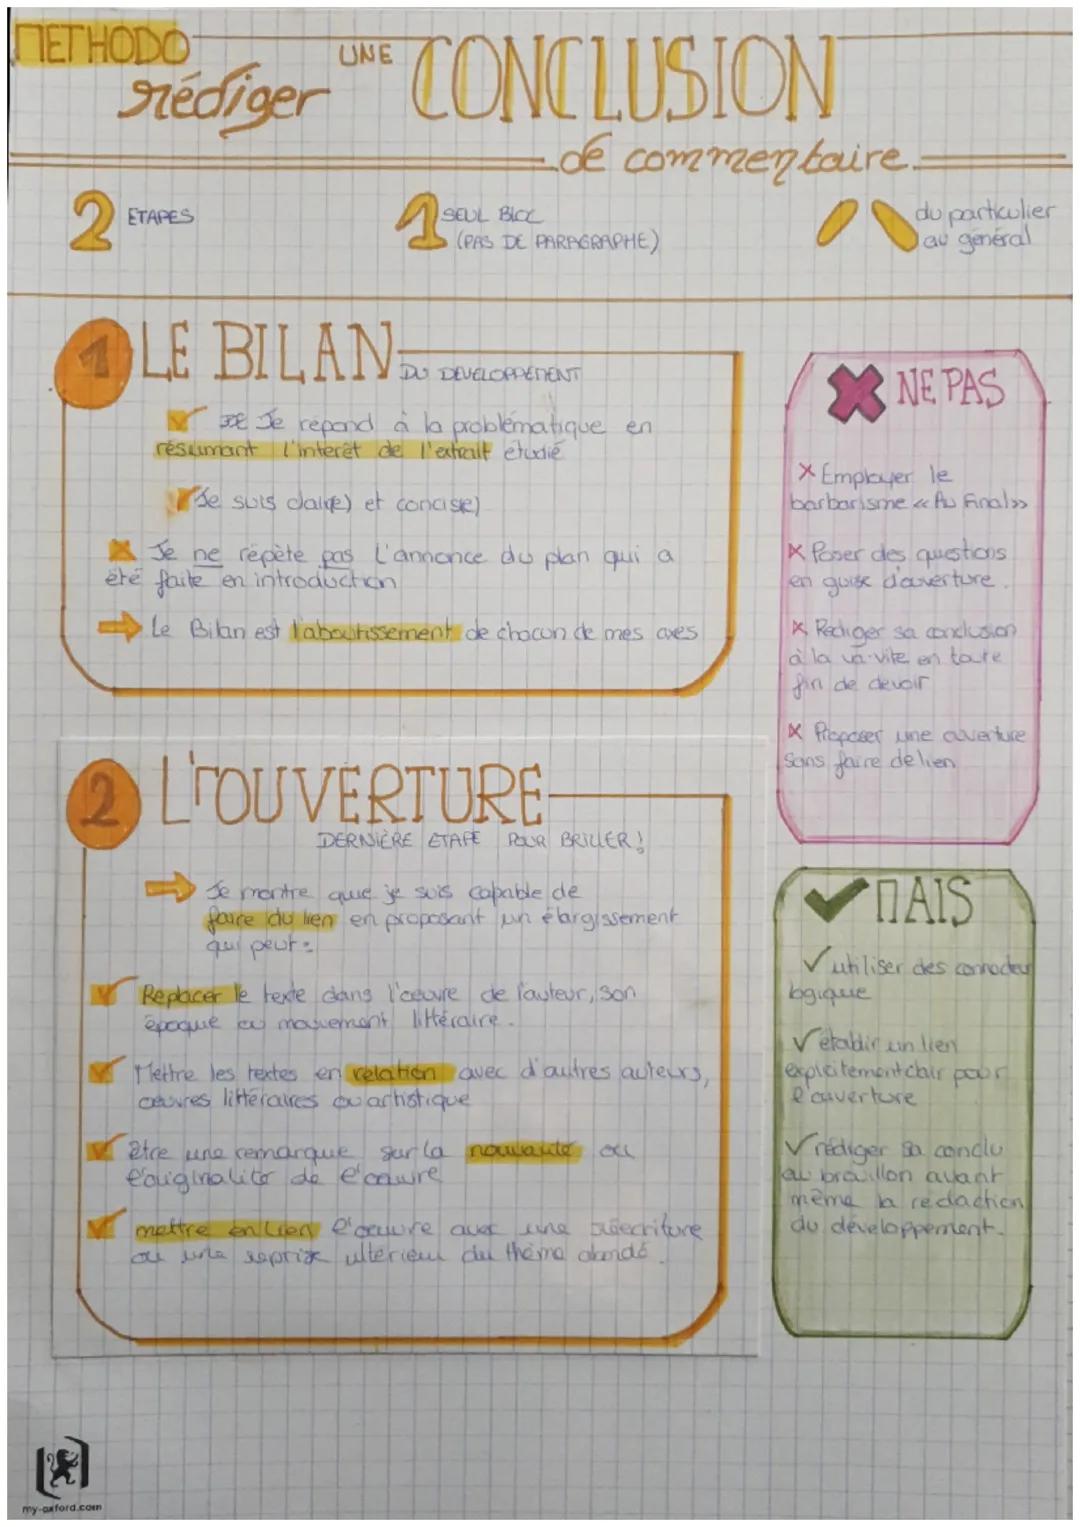 METHODO
rédiger UNE CONCLUSION
de commentaire.
2 ETAPES
1 SEUL BLOC
(PAS DE PARAGRAPHE)
du particulier
au général
1 LE BILAN
DU DEVELOPPEMENT
Je répond à la problématique en
résumant l'interêt de l'extrait étudié
Je suis clair(e) et concis(e)
Je ne répète pas l'annonce du plan qui a
été faite en introduction
Le Bilan est l'aboutissement de chacun de mes axes
NE PAS
Employer le
barbarisme «Au Final»
Poser des questions
en guise d'ouverture.
Rediger sa conclusion
à la va-vite en toute
fin de devoir
Proposer une ouverture
sans faire de lien
2 L'OUVERTURE
DERNIÈRE ETAPE POUR BRILLER!
Je montre que je suis capable de
faire du lien en proposant un élargissement
qui peut:
Replacer le texte dans l'œuvre de l'auteur, son
époque ou mouvement littéraire.
Mettre les textes en relation avec d'autres auteurs,
œuvres littéraires ou artistique
être une remarque sur la nouveauté ou
l'originalité de l'œuvre
mettre en lien l'œuvre avec une réécriture
ou une reprise ultérieur du thème abordé.
MAIS
utiliser des connecteur
logique
établir un lien
explicitement clair pour
l'ouverture
rédiger sa conclu
au brouillon avant
même la rédaction
du développement.
my-oxford.com